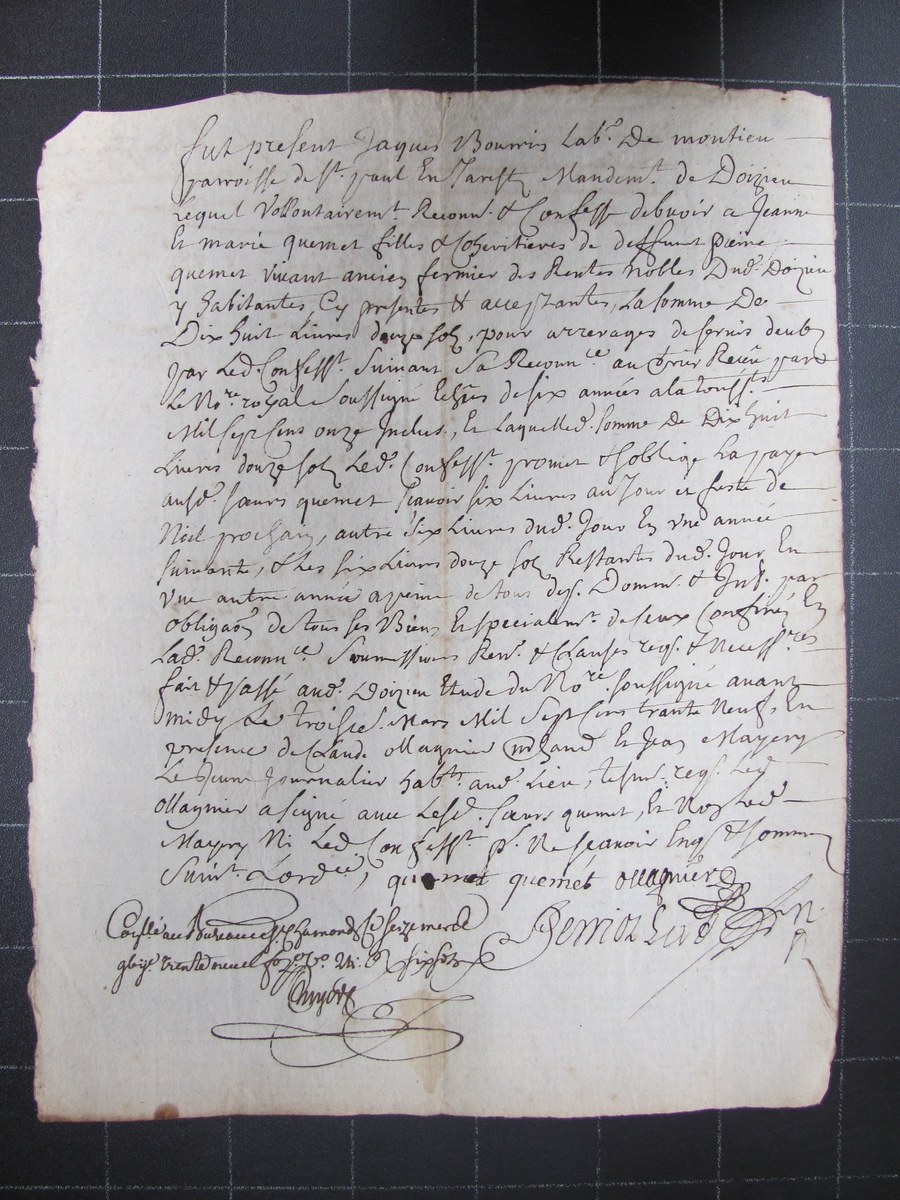 fut present Jaques Bourrin Lab.r De montieu
parroisse de S.t paul En Jarest Mandem.t de Doizieu
lequel Vollontairem.t Reconn. & Confesse debvoir a Jeanne
Et marie quemet filles & Coheritieres de deffunt pierre
quemet vivant ancien fermier des Rentes Nobles Dud. Doizieu
y habitantes, Cy presentes & acceptantes, La somme De
Dix huit Livres douze solz, pour arrerages de servis deubz
par Led. Confess.t Suivant Sa Reconn.ce au terrier Receu par
Le No.re royal Soussigné Echus de six années a la touss.ts
Mil sept cens onze Inclus, Et Laquelle d. somme De Dix huit
Livres douze solz Led. Confess.t promet & soblige La payer
ausd. sœurs quemet scavoir six Livres au Jour et feste de
Noel prochain, autre six Livres dud. Jour En une année
suivante, & Les six Livres douze solz Restants dud. Jour En
une autre année a peine de tous desp. Domm. & Int. par
obligaon de tous ses Biens Et specialem.t de ceux Confinés En
Lad. Reconn.ce Soumissions Ren. & Clauses req. & Necess.res
fait & passé aud. Doizieu Etude du No.re soussigné avant
midy Le troisie. Mars Mil Sept Cens trante Neuf, En
presence de Claude ollagnier Et Jean Mayery
Le Jeune Journalier hab.ts aud. Lieu, tesm. req. Led.
ollagnier a signé avec Lesd. sœurs quemet, Et Non Led.
Mayery Ni Led. Confess.t p.r Ne scavoir Enq. & somme
Suiv.t L'ord.ce, quemet quemét ollagnier
au Bureau de S.t chamond Le seize mars
trente neuf six sols